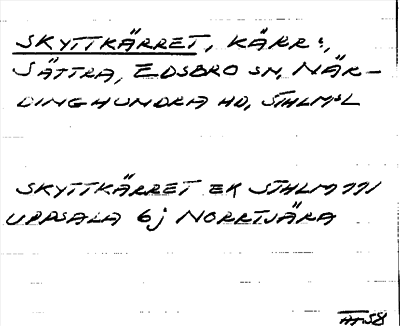 SKYTTKÄRRET, KÄRR:,
SÄTTRA, EDSBRO SN, NÄR-
DINGHUNDRA HD, STHLMSL
SKYTTKÄRRET EK STHLM 111
UPPSALA 6j NORRTJÄRA